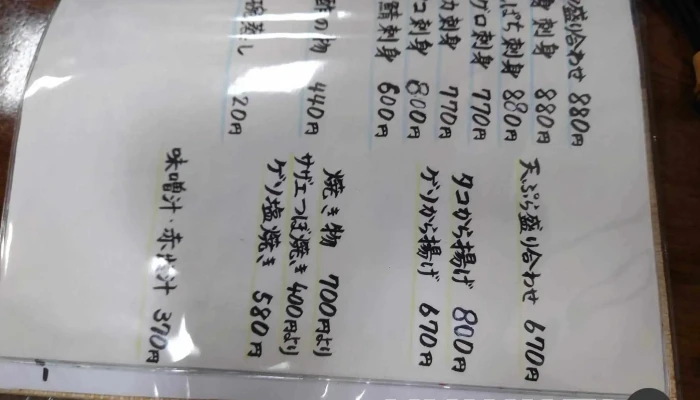 盛り合わせ 880円
刺身 880円
ぱち刺身 880円
グロ刺身 770円
カ刺身 770円
コ刺身 800円
鯖刺身 600円
酢の物 440円
蒸し 20円
天ぷら盛り合わせ 670円
タコから揚げ 800円
ゲソから揚げ 670円
焼き物 700円より
サザエつぼ焼き 400円より
ゲソ塩焼き 580円
味噌汁・赤出汁 370円